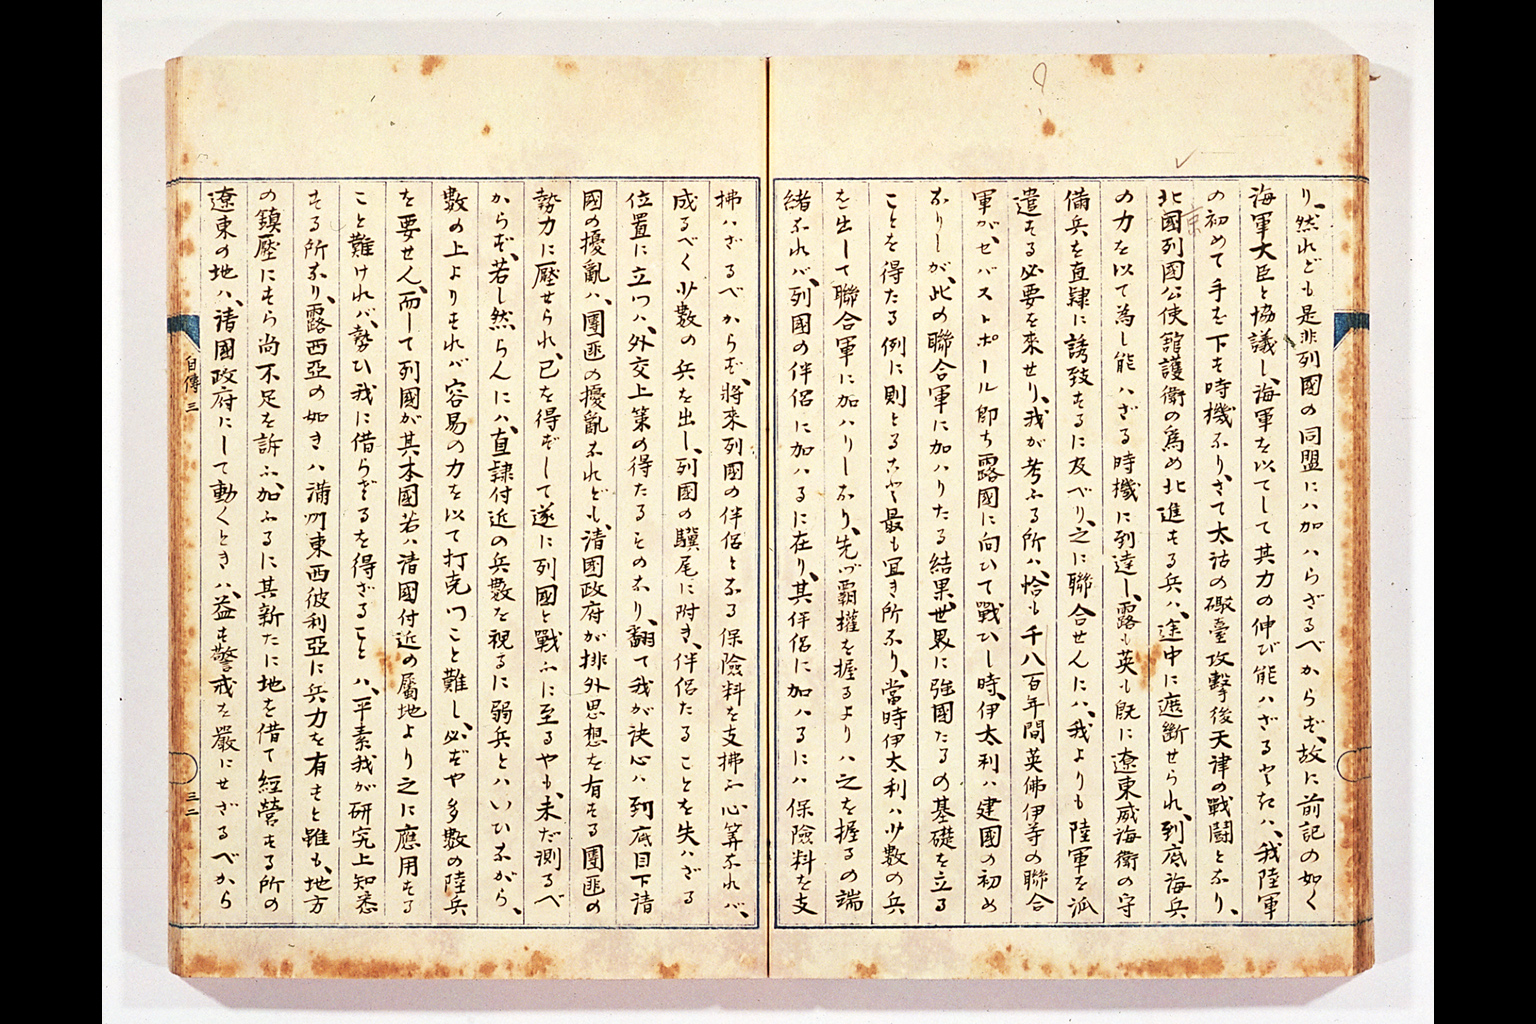 り、然れども是非列國の同盟にハ加ハらざるべからず、故に前記の如く
海軍大臣と協議し、海軍を以てして其力の伸び能ハざるときハ、我陸軍
の初めて手を下す時機なり、さて太沽の砲臺攻擊後天津の戰鬪となり、
北京
國列國公使舘護衛の爲め北進する兵ハ、途中に遮斷せられ、到底海兵
の力を以て爲し能ハざる時機に到達し、露も英も既に遼東威海衛の守
備兵を直隷に誘致するに及べり、之に聯合せんにハ、我よりも陸軍を派
遣する必要を來せり、我が考ふる所ハ、恰も千八百年間英佛伊等の聯合
軍がセバストポール即ち露國に向ひて戰ひし時、伊太利ハ建國の初め
なりしが、此の聯合軍に加ハりたる結果、世界に強國たるの基礎を立る
ことを得たる例に則とること最も宜き所なり、當時伊太利ハ少數の兵
を出して聯合軍に加ハりしなり、先づ覇權を握るよりハ之を握るの端
緒なれバ、列國の伴侶に加ハるに在り、其伴侶に加ハるにハ保險料を支
拂ハざるべからず、將來列國の伴侶となる保險料を支拂ふ心算なれバ、
成るべく少數の兵を出し、列國の驥尾に附き、伴侶たることを失ハざる
位置に立つハ、外交上策の得たるものなり、翻て我が決心ハ到底目下清
國の擾亂ハ、團匪の擾亂なれども、清國政府が排外思想を有する團匪の
勢力に壓せられ、已を得ずして遂に列國と戰ふに至るやも、未だ測るべ
からず、若し然らんにハ、直隷付近の兵數を視るに弱兵とハいひながら、
數の上よりすれバ容易の力を以て打克つこと難し、必ずや多數の陸兵
を要せん、而して列國が其本國若ハ清國付近の屬地より之に應用する
こと難けれバ、勢ひ我に借らざるを得ざることハ、平素我が研究上知悉
する所なり、露西亞の如きハ滿洲東西彼利亞に兵力を有すと雖も、地方
の鎮壓にすら尚不足を訴ふ、加ふるに其新たに地を借て經營する所の
遼東の地ハ、清國政府にして動くときハ、益す警戒を嚴にせざるべから
自傳三
三二